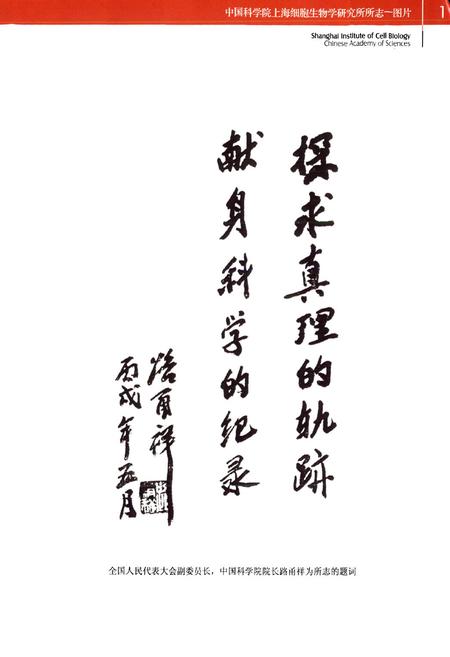 中国科学院上海细胞生物学研究所所志～图片 1
Shanghai Institute of Cell Biology
Chinese Academy of Sciences
探求真理的轨跡
献身科学的纪录
路甬祥
丙戌年五月
全国人民代表大会副委员长，中国科学院院长路甬祥为所志的题词